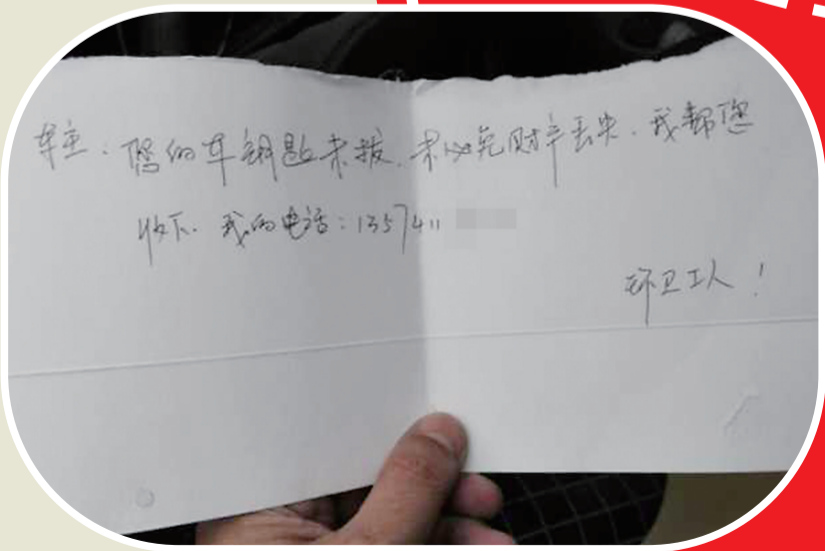 车主：您的车钥匙未拔，未以免财产丢失，我帮您
收下。我的电话：1357411
环卫工人！